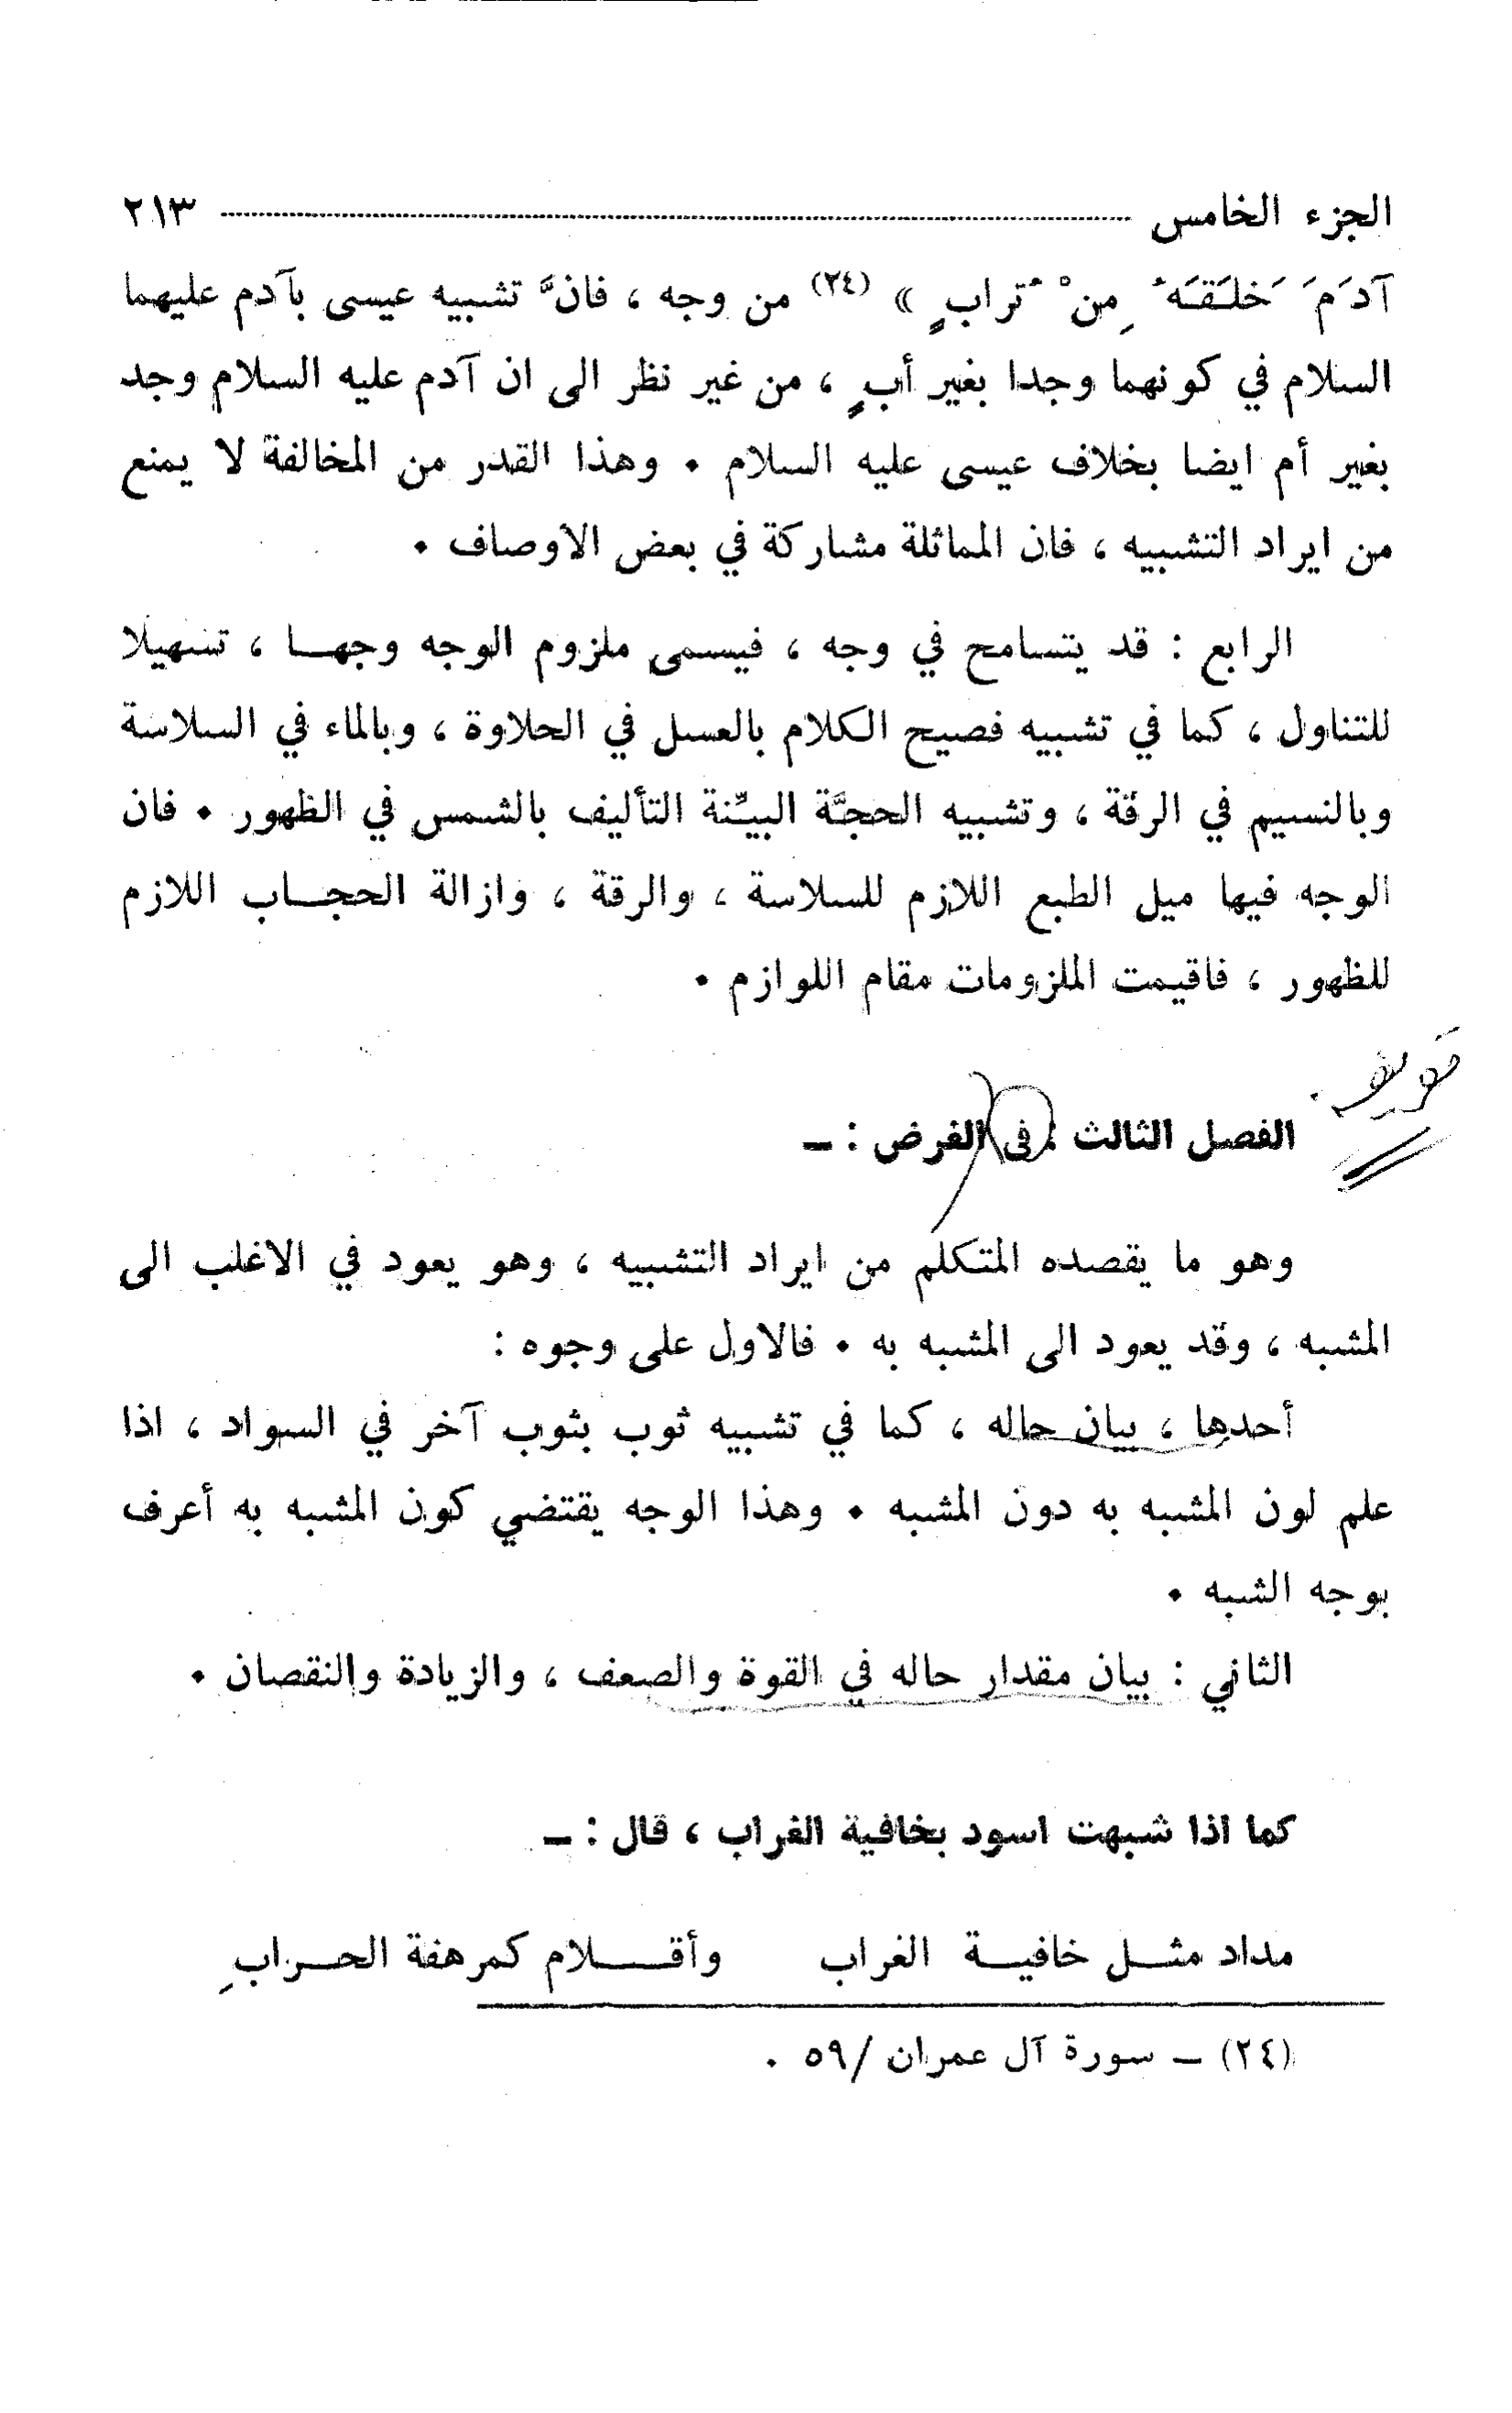 الجزء الخامس ـــــــــــــــــــــــــــــ ٢١٣
آدَمَ خَلَقَهُ مِنْ تُرابٍ » (٢٤) من وجه ، فانَّ تشبيه عيسى بآدم عليهما
السلام في كونهما وجدا بغير أبٍ ، من غير نظر الى ان آدم عليه السلام وجد
بغير أم ايضا بخلاف عيسى عليه السلام ٠ وهذا القدر من المخالفة لا يمنع
من ايراد التشبيه ، فان المماثلة مشاركة في بعض الاوصاف ٠
الرابع : قد يتسامح في وجه ، فيسمى ملزوم الوجه وجهـا ، تسهيلا
للتناول ، كما في تشبيه فصيح الكلام بالعسل في الحلاوة ، وبالماء في السلاسة
وبالنسيم في الرقة ، وتشبيه الحجَّة البيِّنة التأليف بالشمس في الظهور ٠ فان
الوجه فيها ميل الطبع اللازم للسلاسة ، والرقة ، وازالة الحجـاب اللازم
للظهور ، فاقيمت الملزومات مقام اللوازم ٠
الفصل الثالث : فى الغرض : ـ
وهو ما يقصده المتكلم من ايراد التشبيه ، وهو يعود في الاغلب الى
المشبه ، وقد يعود الى المشبه به ٠ فالاول على وجوه :
أحدها ، بيان حاله ، كما في تشبيه ثوب بثوب آخر في السواد ، اذا
علم لون المشبه به دون المشبه ٠ وهذا الوجه يقتضي كون المشبه به أعرف
بوجه الشبه ٠
الثاني : بيان مقدار حاله في القوة والضعف ، والزيادة والنقصان ٠
كما اذا شبهت اسود بخافية الغراب ، قال : ـ
مداد مثـل خافيـة الغراب وأقـلام كمرهفة الحـرابِ
(٢٤) ـ سورة آل عمران /٥٩ .